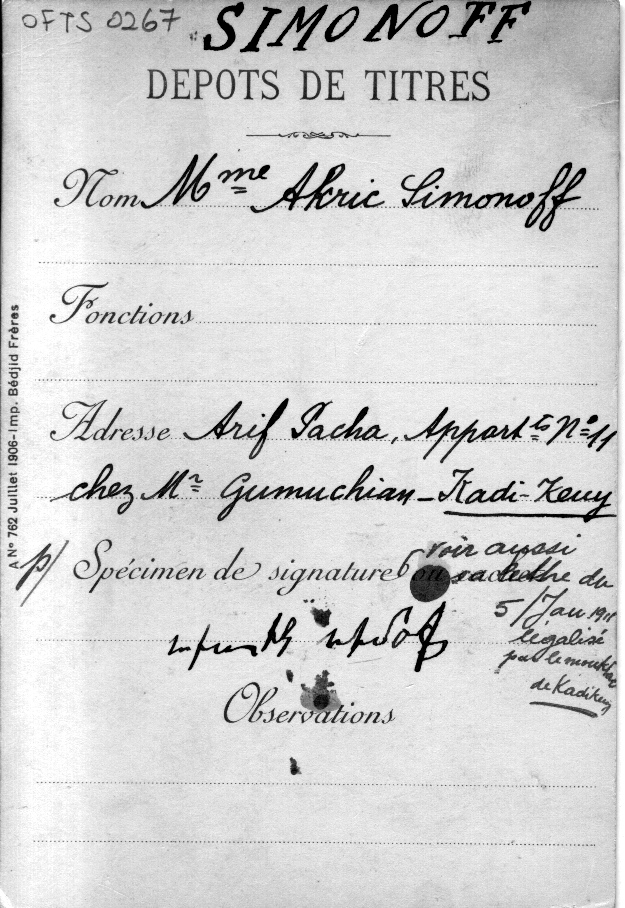 OFTS 0267
SIMONOFF
DEPOTS DE TITRES
Nom Mme Akric Simonoff
Fonctions
Adresse Arif Pacha, Appartts No 11
chez Mr Gumuchian - Kadi-Keuy
p/ Spécimen de signature ou cachet
voir aussi
la lettre du
5/Jan 191
légalisé
par le mouktar
de Kadikeuy
Observations
A No 762 Juillet 1906-Imp. Bédjid Frères